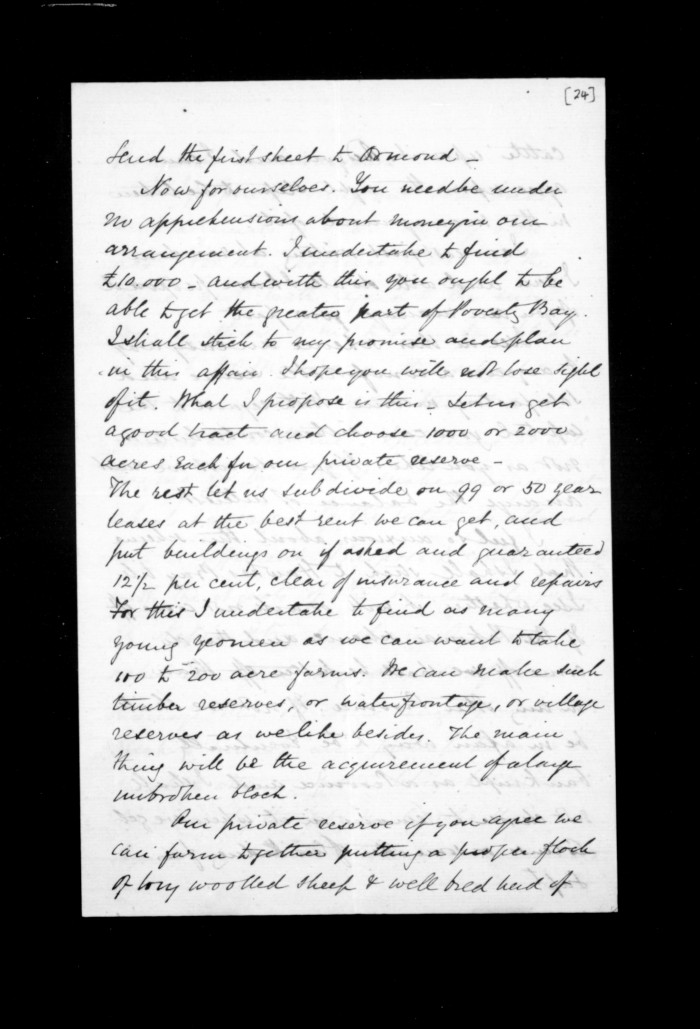 [24]
Send the first sheet to Ormond –
Now for ourselves. You need be under
no apprehensions about money in our
arrangement. I undertake to find
£10.000 – and with this you ought to be
able to get the greater part of Poverty Bay.
I shall stick to my promise and plan
in this affair. I hope you will not lose sight
of it. What I propose is this – Let us get
a good tract and choose 1000 or 2000
acres each for our private reserve –
The rest let us subdivide on 99 or 50 year
leases at the best rent we can get, and
put buildings on if asked and guaranteed
12½ per cent, clear of insurance and repairs
For this I undertake to find as many
young yeomen as we can want to take
100 to 200 acre farms. We can make such
timber reserves, or water frontage, or village
reserves as we like besides. The main
thing will be the acquirement of a large
unbroken block.
Our private reserve if you agree we
can farm together putting a proper flock
of long woolled sheep & well bred herd of